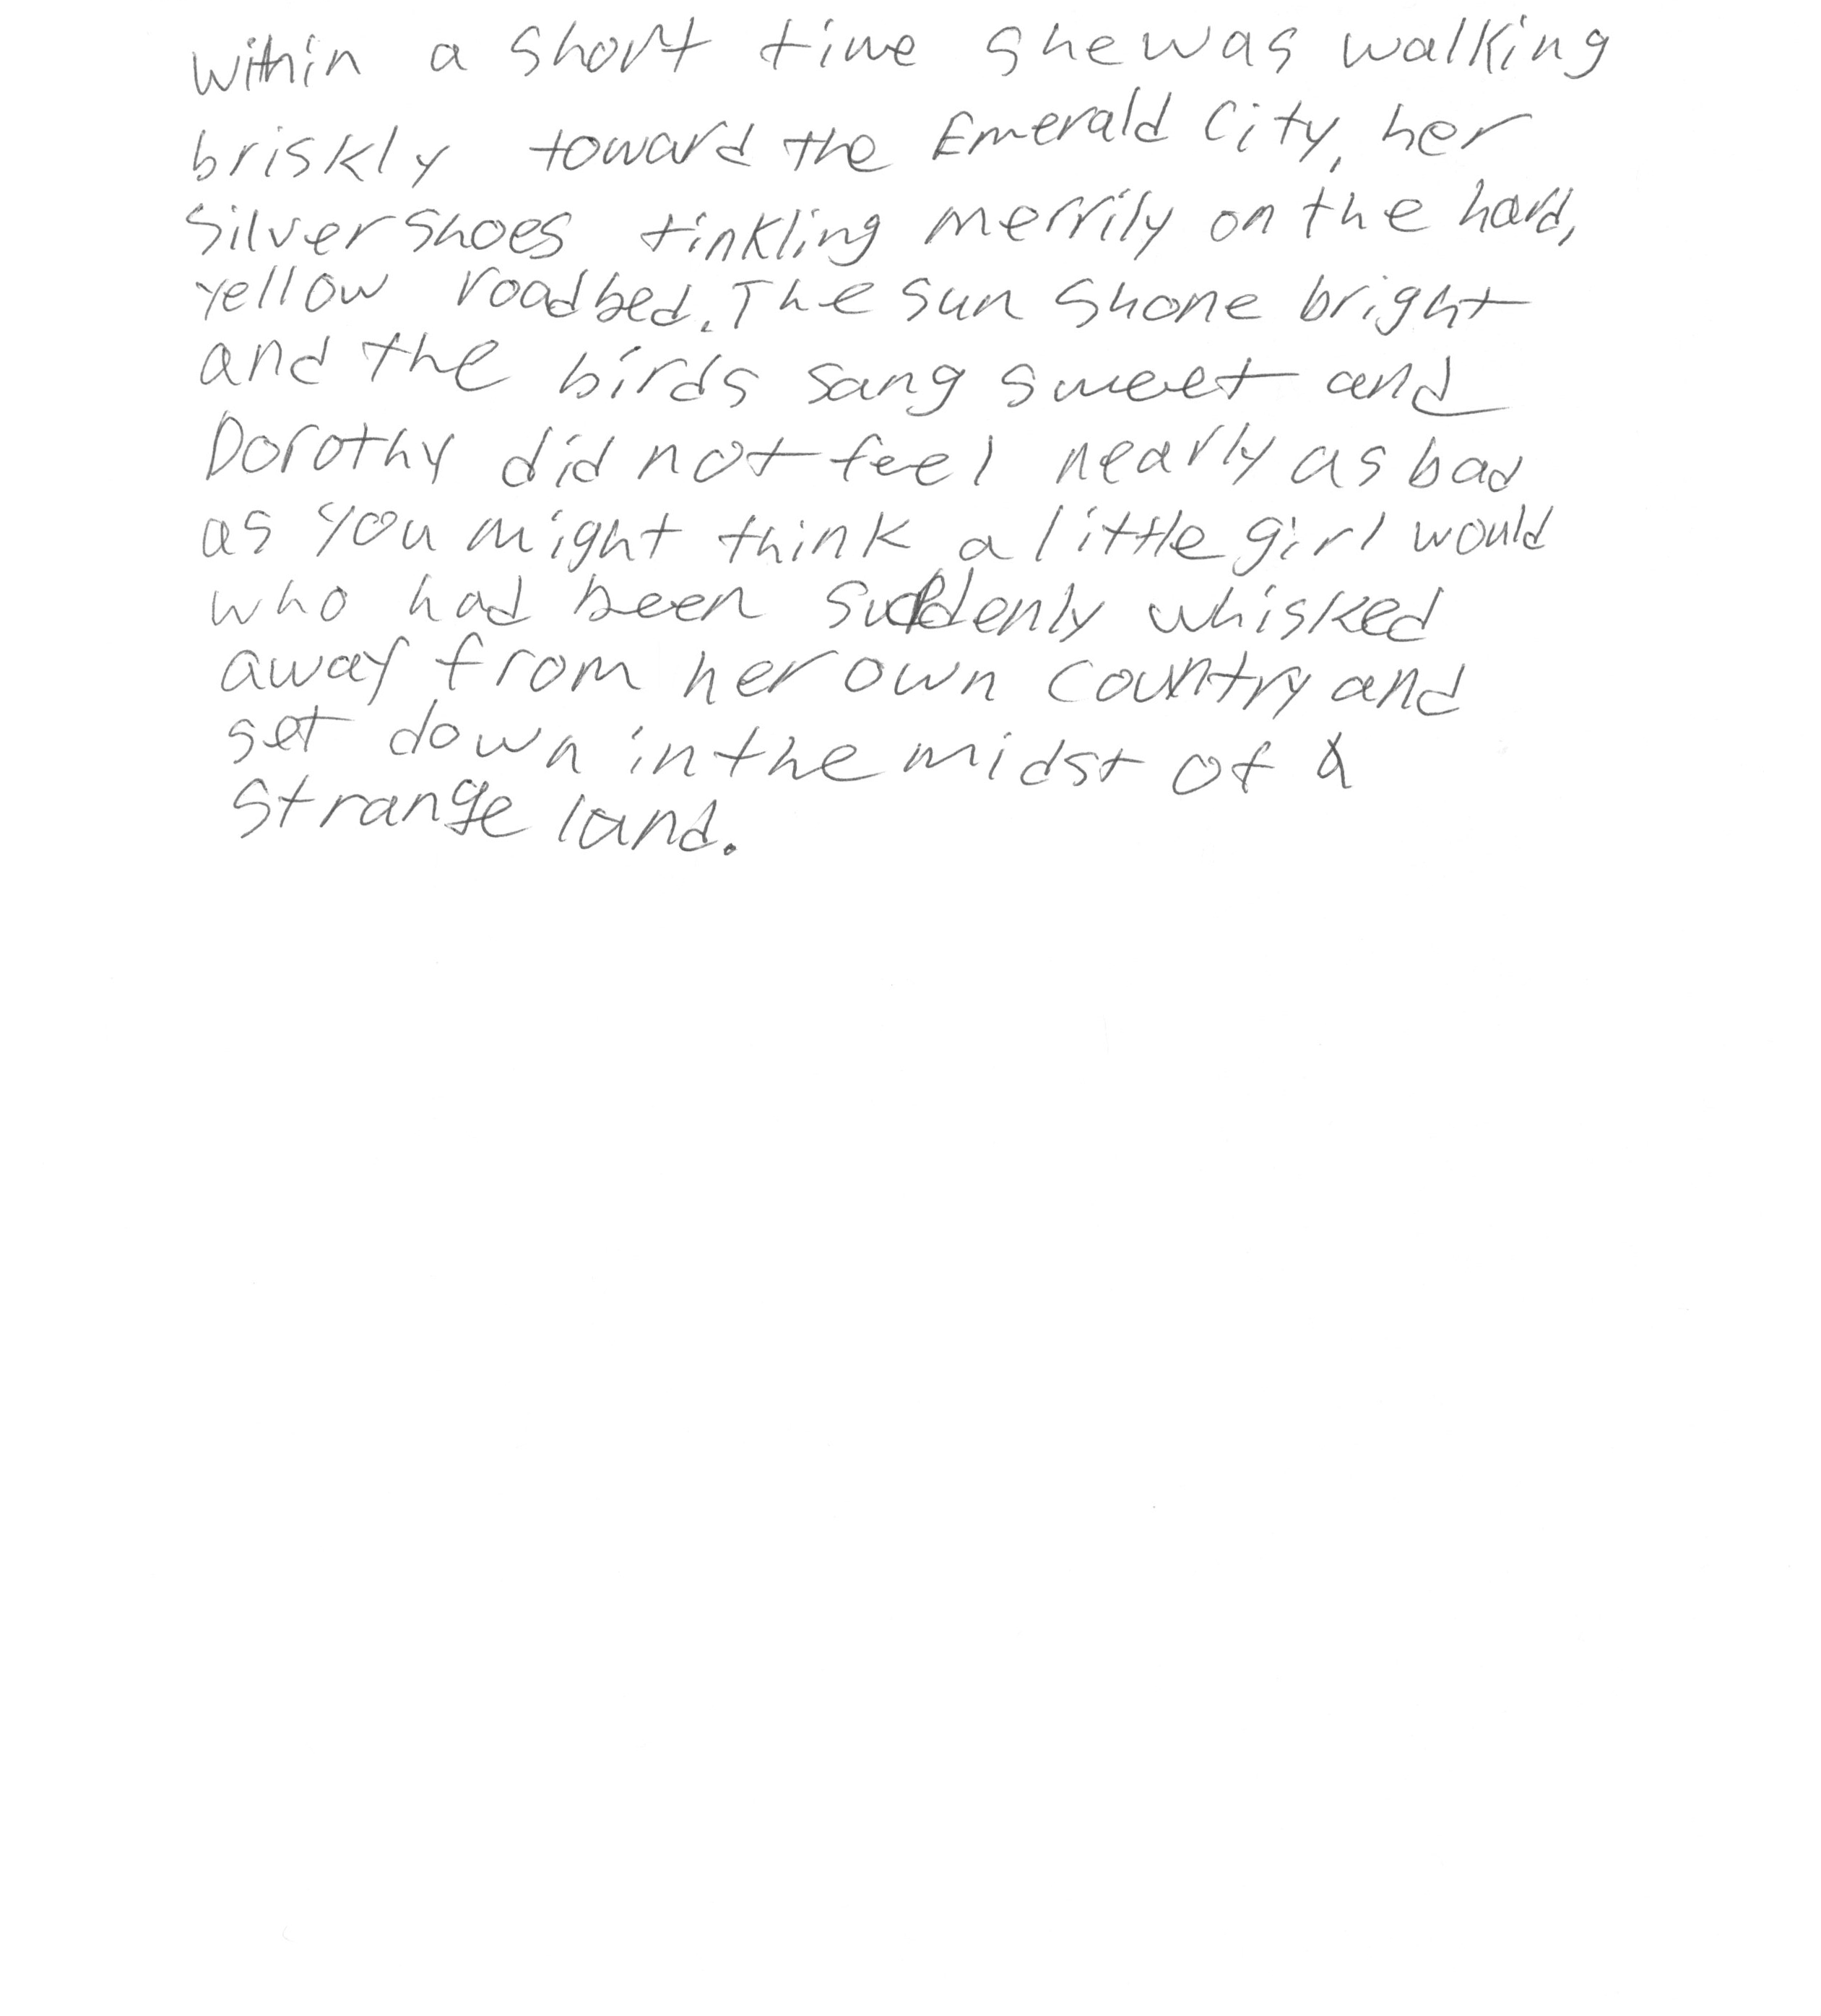 Within a short time she was walking
briskly toward the Emerald City, her
silver shoes tinkling merrily on the hard,
yellow roadbed. The sun shone bright
and the birds sang sweet and
Dorothy did not feel nearly as bad
as you might think a little girl would
who had been suddenly whisked
away from her own country and
set down in the midst of a
strange land.